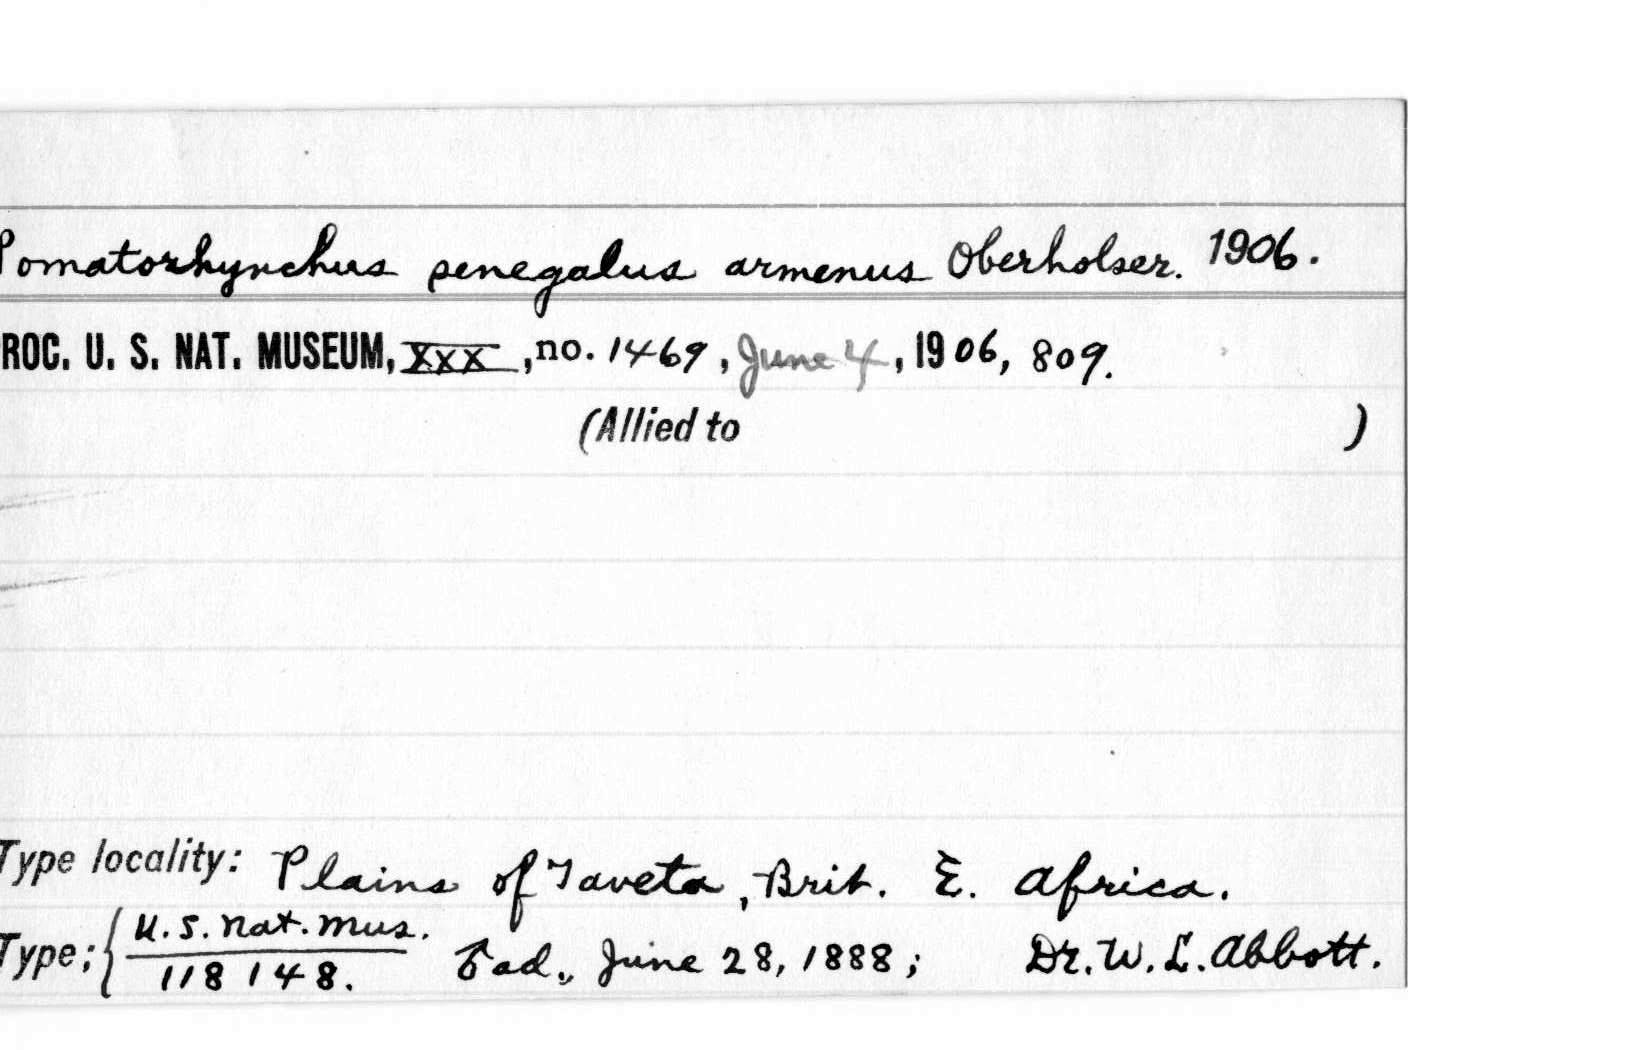 Pomatorhynchus senegalus armenus Oberholser. 1906.
ROC. U. S. NAT. MUSEUM, XXX, no. 1469, June 4, 1906, 809.
(Allied to )
Type locality: Plains of Taveta, Brit. E. Africa.
Type: { U.S. Nat. Mus. 118148. ad., June 28, 1888; Dr. W. L. Abbott.